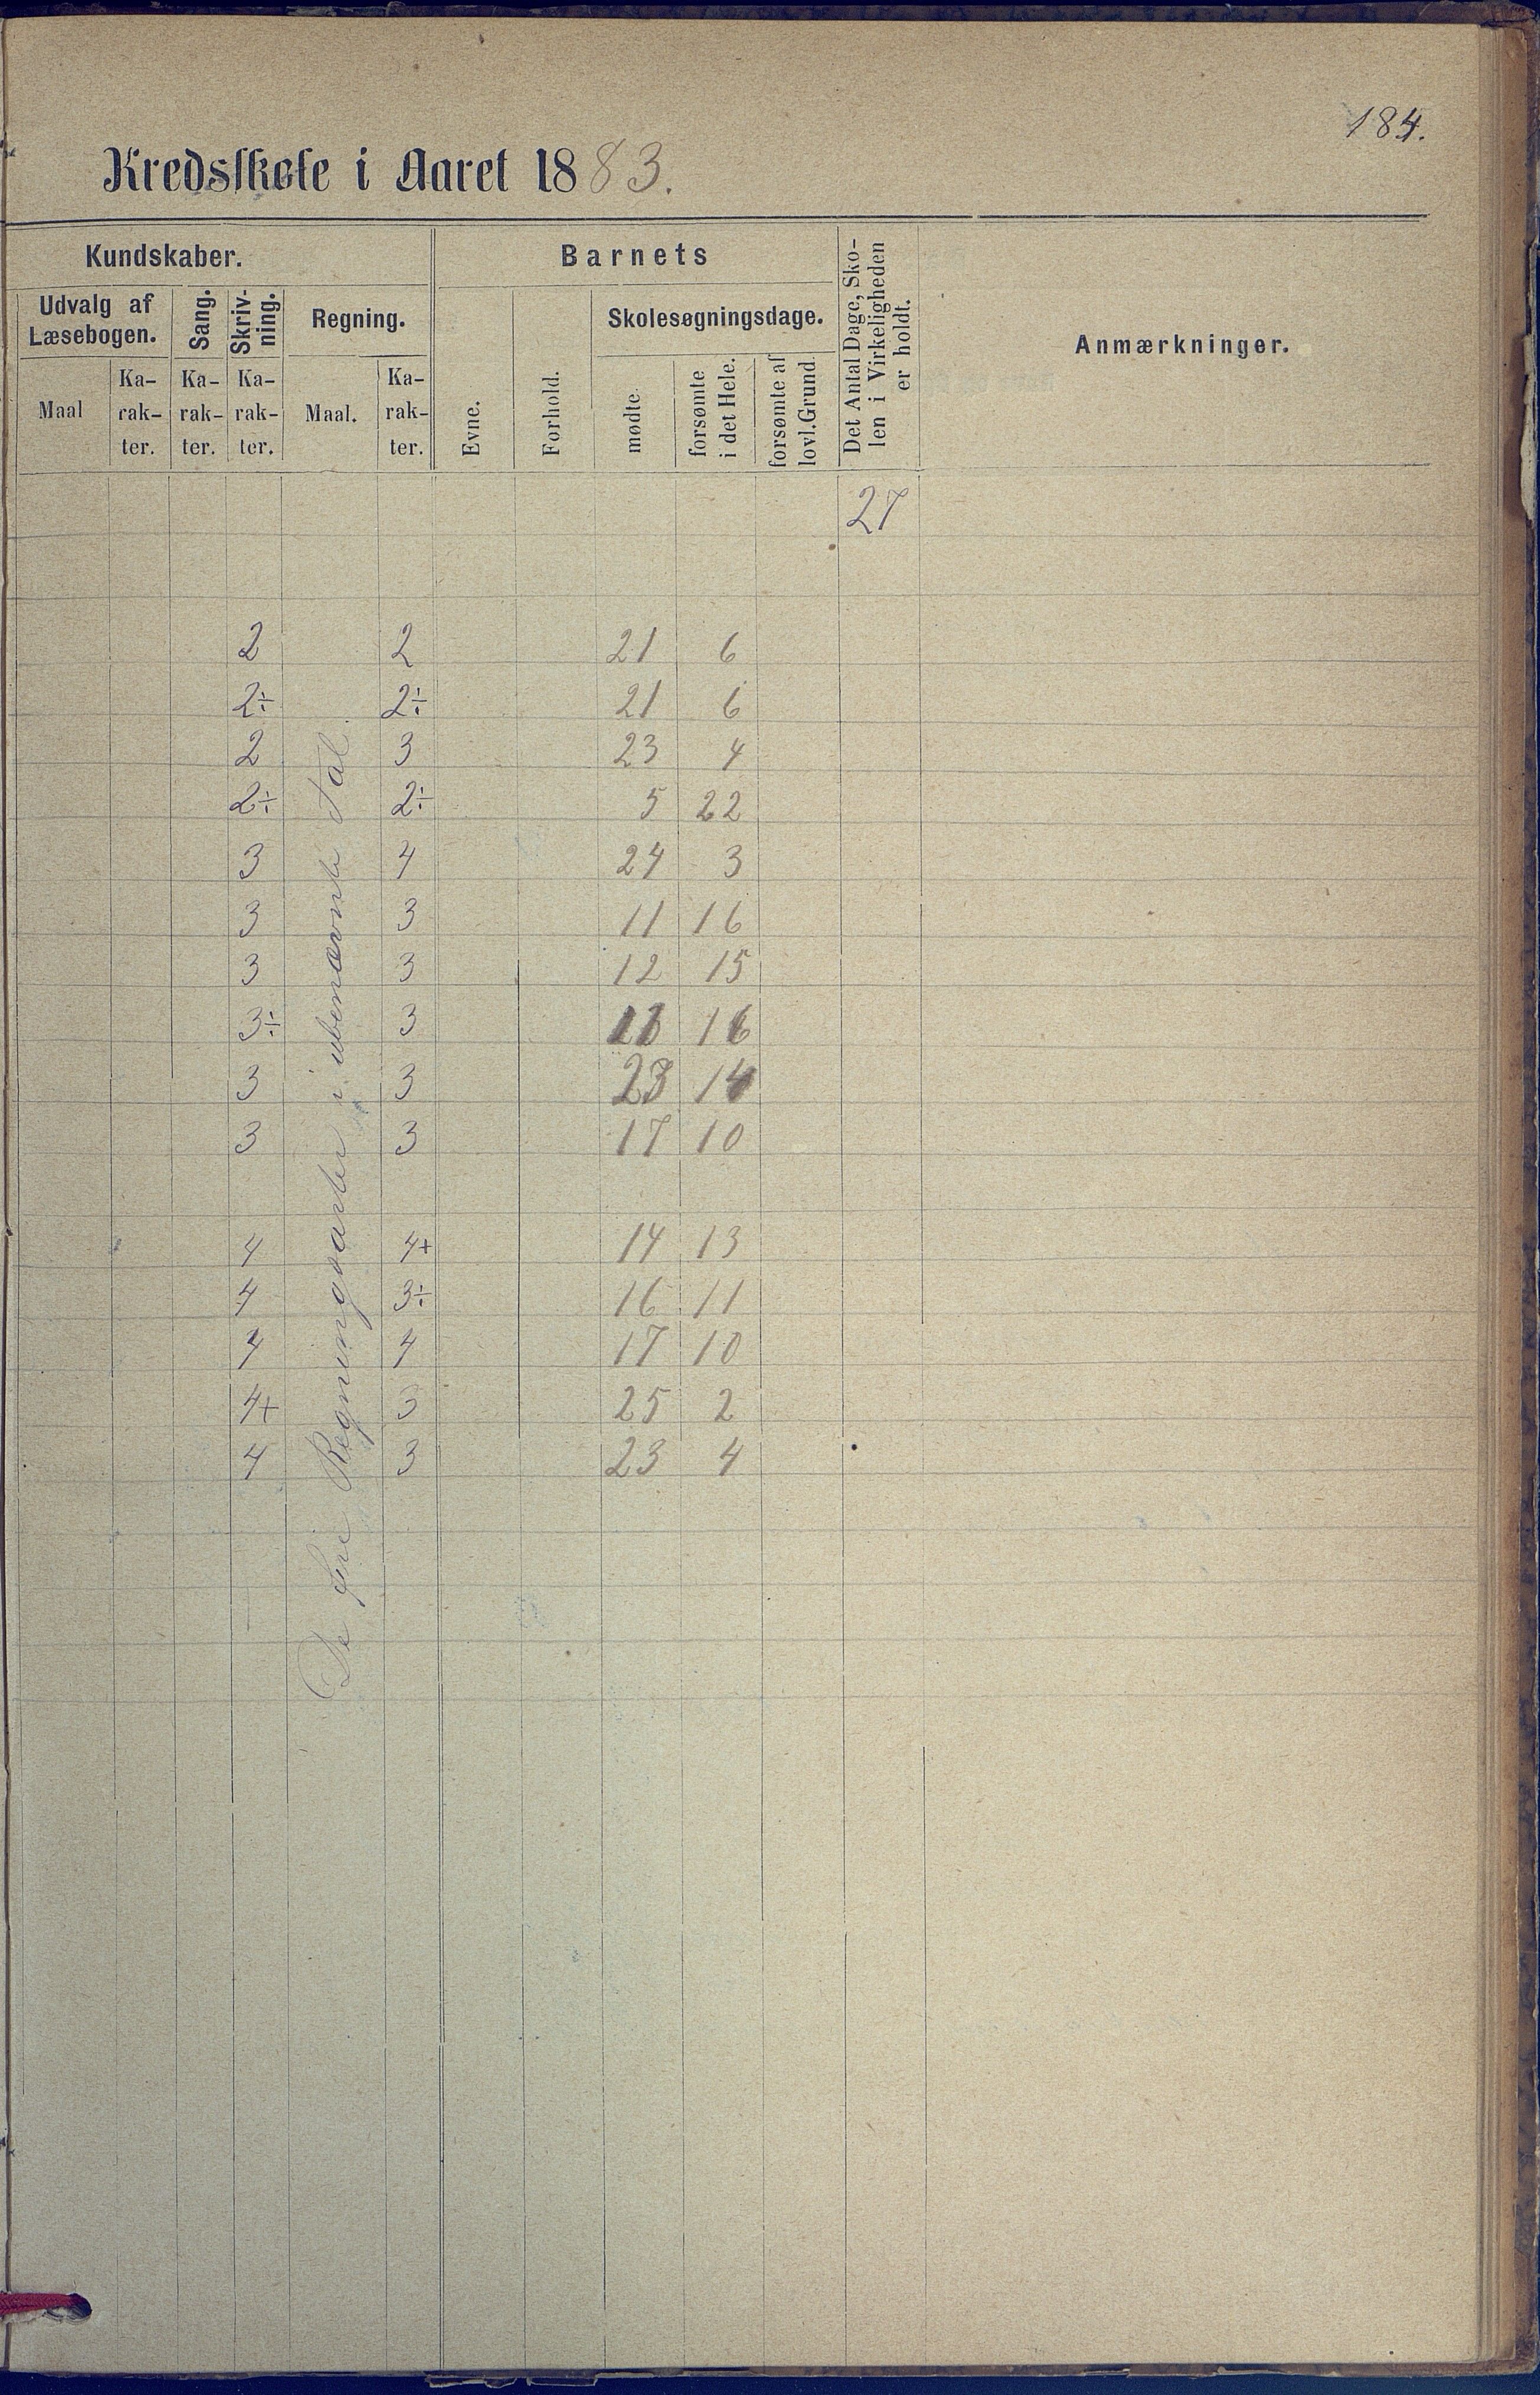 184.
Kredsskole i Aaret 1883.
Kundskaber.
Barnets
Det Antal Dage, Sko-
len i Virkeligheden
er holdt.
Anmærkninger.
Udvalg af
Læsebogen.
Sang.
Skriv-
ning.
Regning.
Skolesøgningsdage.
Maal
Ka-
rak-
ter.
Ka-
rak-
ter.
Ka-
rak-
ter.
Maal.
Ka-
rak-
ter.
Evne.
Forhold.
mødte.
forsømte
i det Hele.
forsømte af
lovl. Grund
27
De fire Regningsarter i ubenævnte Tal.
2 2 21 6
2÷ 2÷ 21 6
2 3 23 4
2÷ 2÷ 5 22
3 4 24 3
3 3 11 16
3 3 12 15
3÷ 3 16
3 3 14
3 3 17 10
4 4+ 14 13
4 3÷ 16 11
4 4 17 10
4+ 3 25 2
4 3 23 4